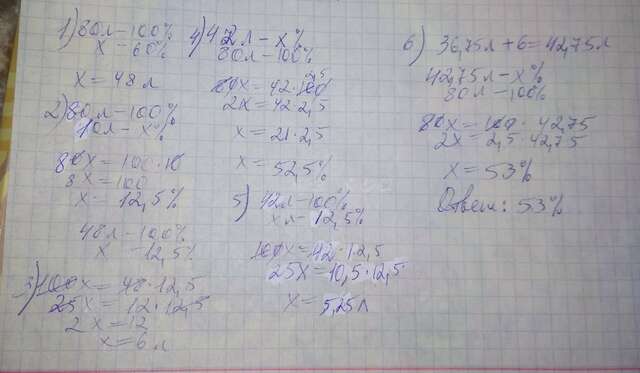 1) 80л – 100%
x – 60%
x = 48 л
2) 80л – 100%
10л – x%
80x = 100·10
8x = 100
x = 12,5%
48л – 100%
x – 12,5%
3) 100x = 48·12,5
25x = 12·12,5
2x = 12
x = 6 л
4) 42л – x%
80л – 100%
80x = 42·100
2x = 42·2,5
x = 21·2,5
x = 52,5%
5) 42л – 100%
xл – 12,5%
100x = 42·12,5
25x = 10,5·12,5
x = 5,25л
6) 36,75л + 6 = 42,75л
42,75л – x%
80л – 100%
80x = 100·42,75
2x = 2,5·42,75
x = 53%
Ответ: 53%